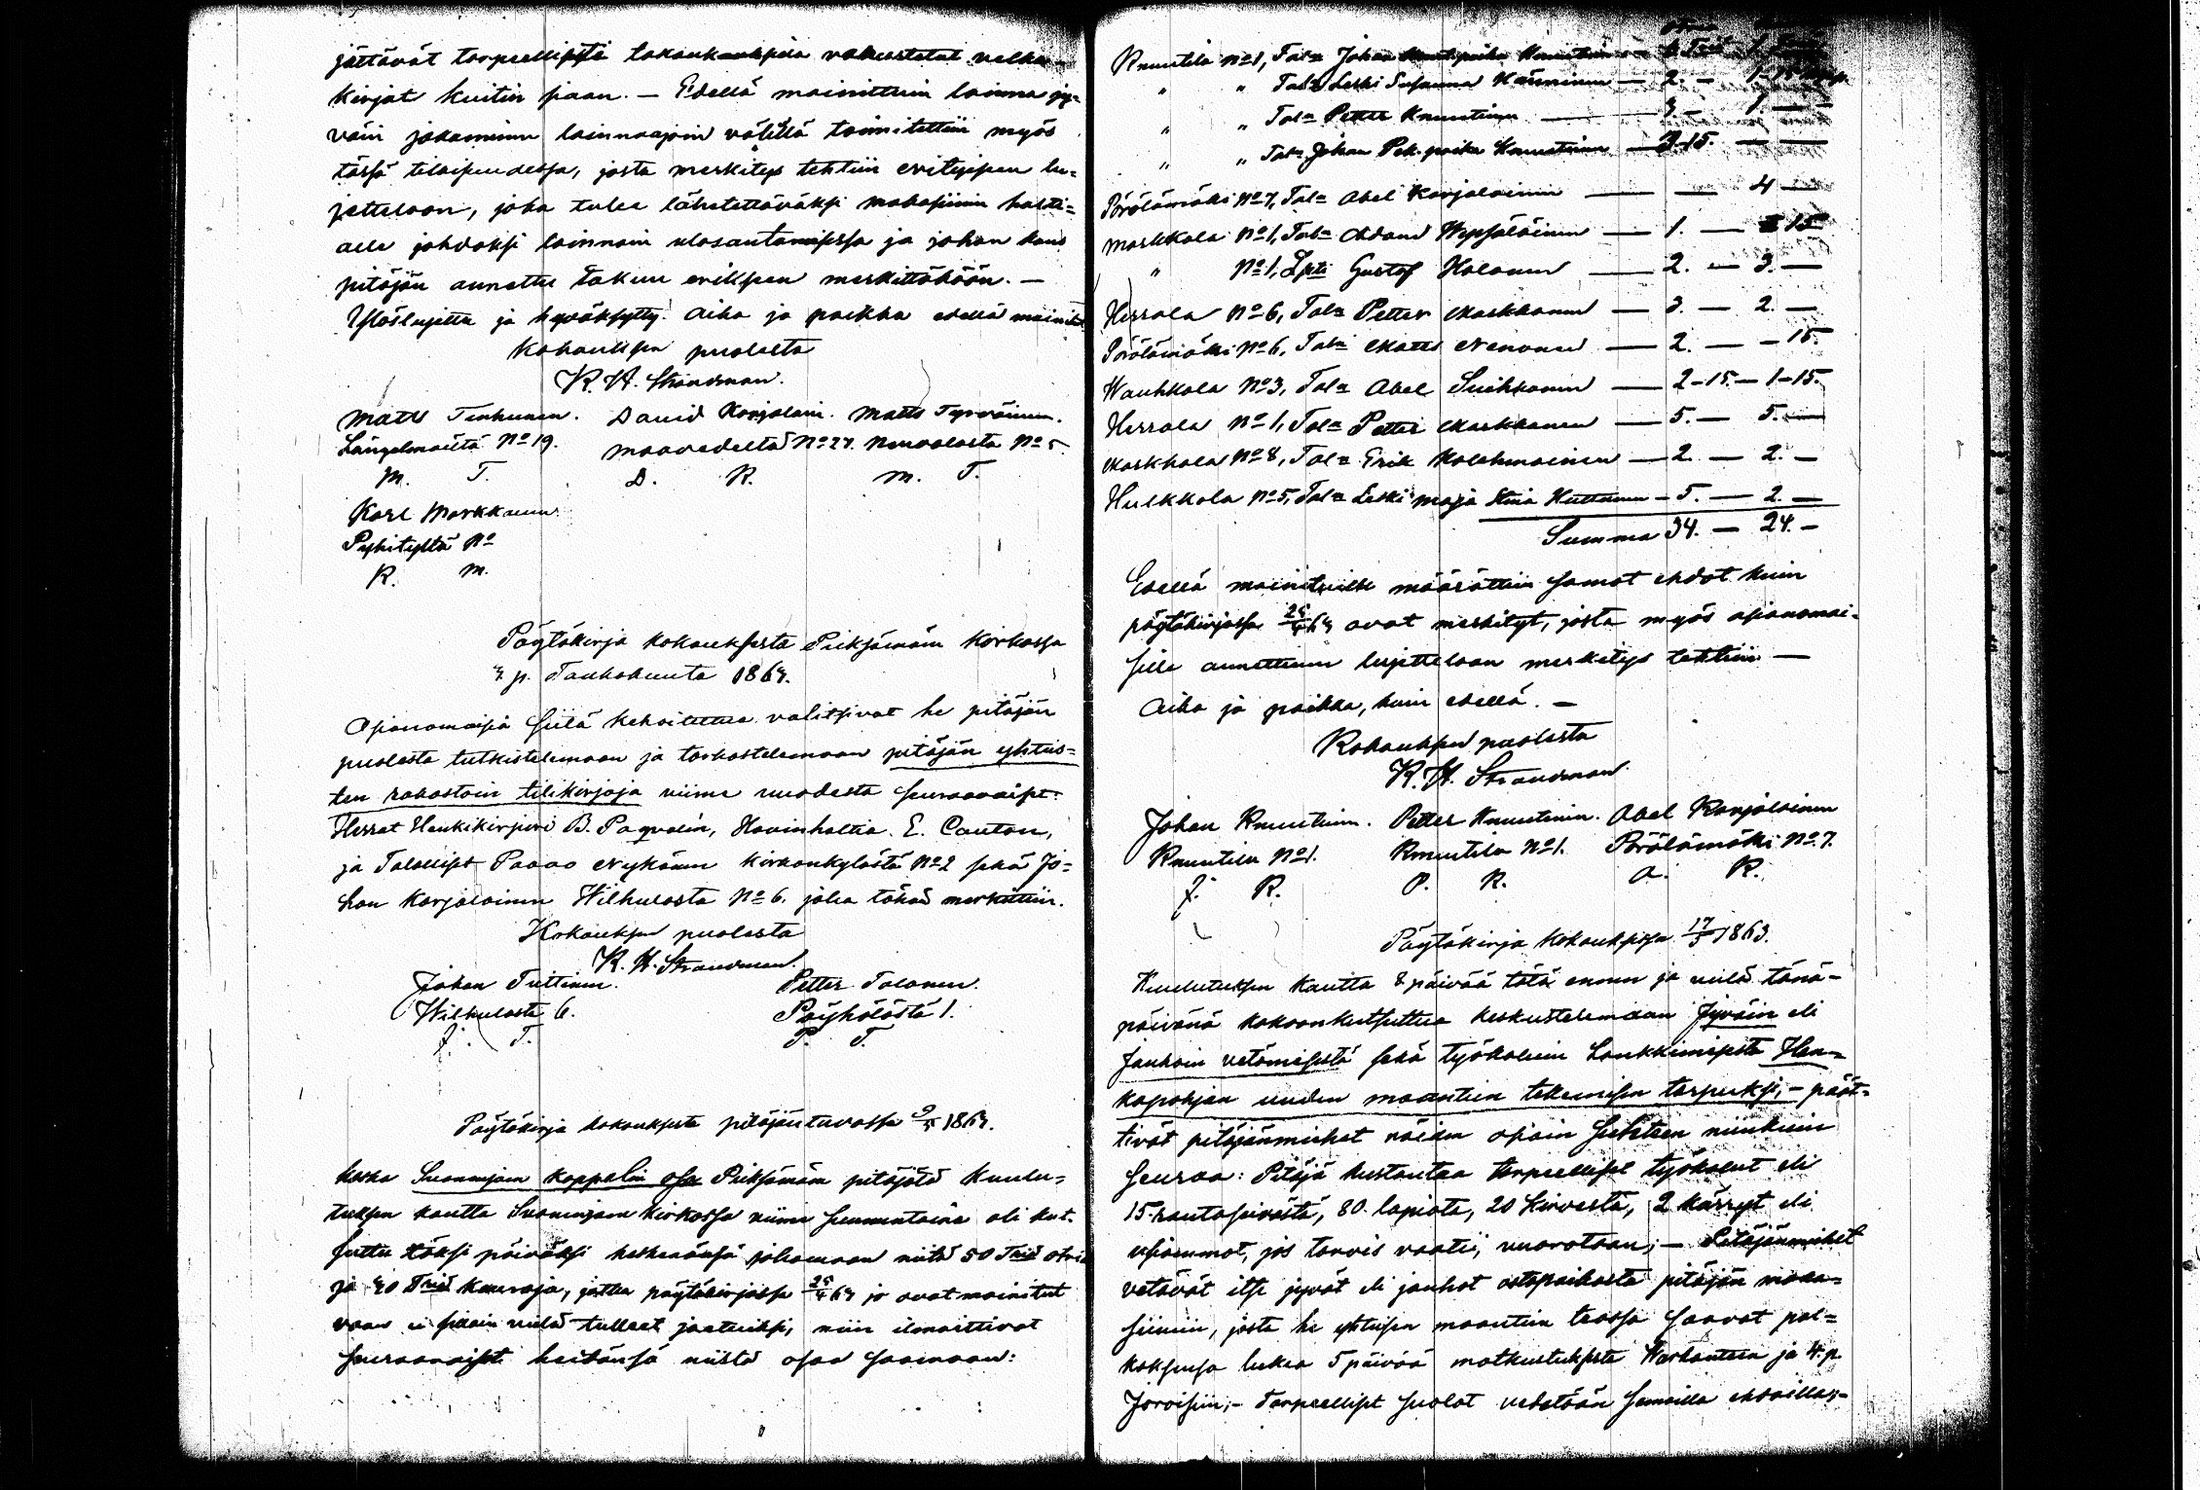 jättävät tarpeellisesti takauksissa vakuutetut velka-
kirjat kuitin siaan. — Edellä mainittuin lainna jy-
väin jakaminen lainnaajoin välillä toimitettiin myös
tässä tilaisuudessa, josta merkitys tehtiin erityiseen lu-
jetteloon, joka tulee lähetettäväksi makasiinin halti-
alle johdoksi lainnain ulosantamisessa ja johon kans
pitäjän annettu takuu erikseen merkittäköön. —
Ylösluettu ja hyväksytty. Aika ja paikka edellä mainittu
Kokouksen puolesta
K. H. Strandman.
Matts Tenhunen. David Karjalain. Matts Tyrväinen.
Längelmäeltä No 19. Maavedeltä No 27. Neuvolasta No 5.
M. T. D. K. M. T.
Karl Markkanen
Pyhityltä No
K. M.
Pöytäkirja kokouksesta Pieksämän kirkossa
3 p. Toukokuuta 1863.
Asianomaisia siitä kehoitettua valitsivat he pitäjän
puolesta tutkistelemaan ja tarkastelemaan pitäjän yhteis-
ten rahastoin tilikirjoja viime vuodesta seuraavaiset:
Herrat Henkikirjuri B. Pagvalin, Hovinhaltia E. Cantón,
ja Talolliset Paavo Nykänen Kirkonkylästä No 2 sekä Jo-
han Karjalainen Wilhulasta No 6. joka tähän merkittiin.
Kokouksen puolesta
K. H. Strandman.
Johan Tuttinen. Petter Talonen.
Wilhulasta 6. Pöyhölästä 1.
J. T. P. T.
Pöytäkirja kokouksesta pitäjäntuvassa 9/5 1863.
Koska Suonenjoen kappelin osa Pieksämän pitäjästä kuulu-
tuksen kautta Suonenjoen kirkossa viime sunnuntaina oli kut-
suttu täksi päiväksi keskenänsä jakamaan niitä 50 Triä otria
ja 30 Triä kauroja, jotka pöytäkirjassa 25/4 63 jo ovat mainitut
vaan ei silloin vielä tulleet jaetuiksi, niin ilmoittivat
seuraavaiset heitänsä niistä osaa saamaan:
Knuutila No 1, Taln Johan Knuutinen
" " Taln Leski Susanna Hänninen — 2. —
" " Taln Petter Knuutinen — 3 — 1 —
" " Taln Johan Pet. poika Knuutinen — 3-15. — —
Pörölänmäki No 7, Taln Abel Karjalainen — — 4 —
Markkala No 1, Taln Adam Wepsäläinen — 1. — 15
" No 1, Lpti Gustaf Halonen — 2. — 3. —
Herrala No 6, Taln Petter Markkanen — 3. — 2. —
Pörölänmäki No 6, Taln Matts Nenonen — 2. — — 15.
Wauhkala No 3, Taln Abel Suihkonen — 2-15. — 1-15.
Herrala No 1, Taln Petter Markkanen — 5. — 5. —
Markkala No 8, Taln Erik Kolehmainen — 2. — 2. —
Hulkkola No 5, Taln Leski Maja Stina Huttunen — 5. — 2. —
Summa 34. — 24. —
Edellä mainituille määrättiin samat ehdot kuin
pöytäkirjassa 25/4 63 ovat merkityt, josta myös asianomai-
sille annettuun lujetteloon merkitys tehtiin —
Aika ja paikka, kuin edellä. —
Kokouksen puolesta
K. H. Strandman.
Johan Knuutinen. Petter Knuutinen. Abel Karjalainen
Knuutila No 1. Knuutila No 1. Pörölänmäki No 7.
J. K. P. K. A. K.
Pöytäkirja kokouksissa 17/5 1863.
Kuulutuksen kautta 8 päivää tätä ennen ja vielä tänä-
päivänä kokoonkutsuttua keskustelemaan Jyväin eli
Jauhoin vetämisestä sekä työkaluin hankkimisesta Han-
kapohjan uuden maantien tekemisen tarpeeksi, — päät-
tivät pitäjänmiehet näiden asiain suhteen niinkuin
seuraa: Pitäjä kustantaa tarpeelliset työkalut eli
15 rautaseivästä, 80 lapiota, 20 kirvestä, 2 kärryt eli
useammat, jos tarvis vaatii, vuorotaan; — Pitäjänmiehet
vetävät itse jyvät eli jauhot ostopaikasta pitäjän maka-
siiniin, josta he yhteisen maantien teossa saavat pal-
kakseusa lukea 5 päivää matkustuksesta Warkauteen ja 4 p
Joroisiin; — Tarpeelliset suolat vedetään samoilla ehdoillas-